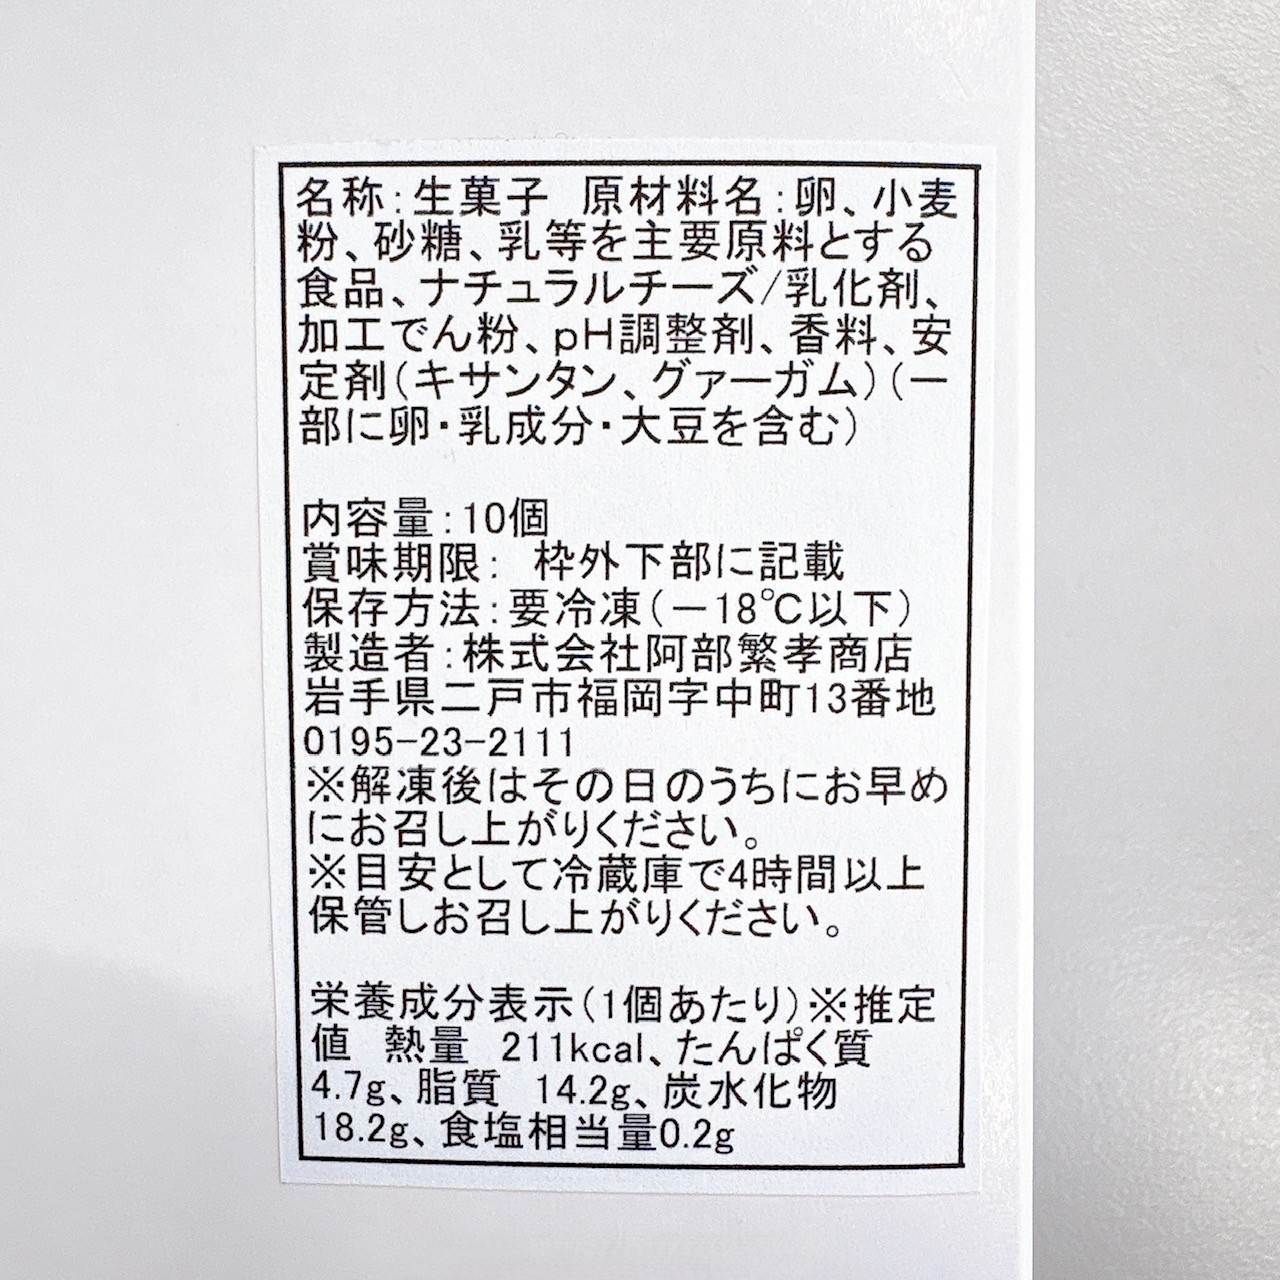 名称：生菓子　原材料名：卵、小麦
粉、砂糖、乳等を主要原料とする
食品、ナチュラルチーズ/乳化剤、
加工でん粉、pH調整剤、香料、安
定剤（キサンタン、グァーガム）（一
部に卵・乳成分・大豆を含む）
内容量：10個
賞味期限：　枠外下部に記載
保存方法：要冷凍（－18℃以下）
製造者：株式会社阿部繁孝商店
岩手県二戸市福岡字中町13番地
0195-23-2111
※解凍後はその日のうちにお早め
にお召し上がりください。
※目安として冷蔵庫で4時間以上
保管しお召し上がりください。
栄養成分表示（1個あたり）※推定
値　熱量　211kcal、たんぱく質
4.7g、脂質　14.2g、炭水化物
18.2g、食塩相当量0.2g